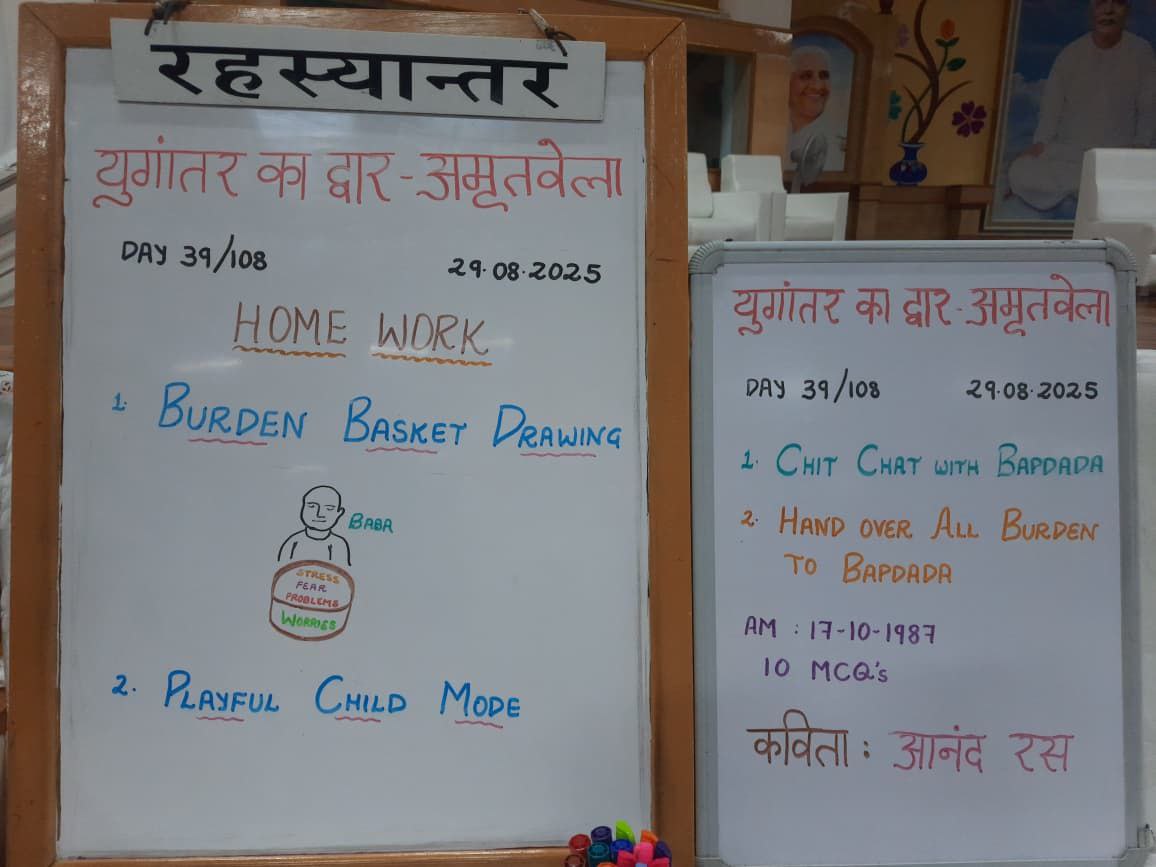 रहस्यान्तर
युगांतर का द्वार-अमृतवेला
DAY 39/108 29.08.2025
HOME WORK
1. BURDEN BASKET DRAWING
BABA
STRESS
FEAR
PROBLEMS
WORRIES
2. PLAYFUL CHILD MODE
युगांतर का द्वार-अमृतवेला
DAY 39/108 29.08.2025
1. CHIT CHAT WITH BAPDADA
2. HAND OVER ALL BURDEN
TO BAPDADA
AM : 17-10-1987
10 MCQ's
कविता : आनंद रस